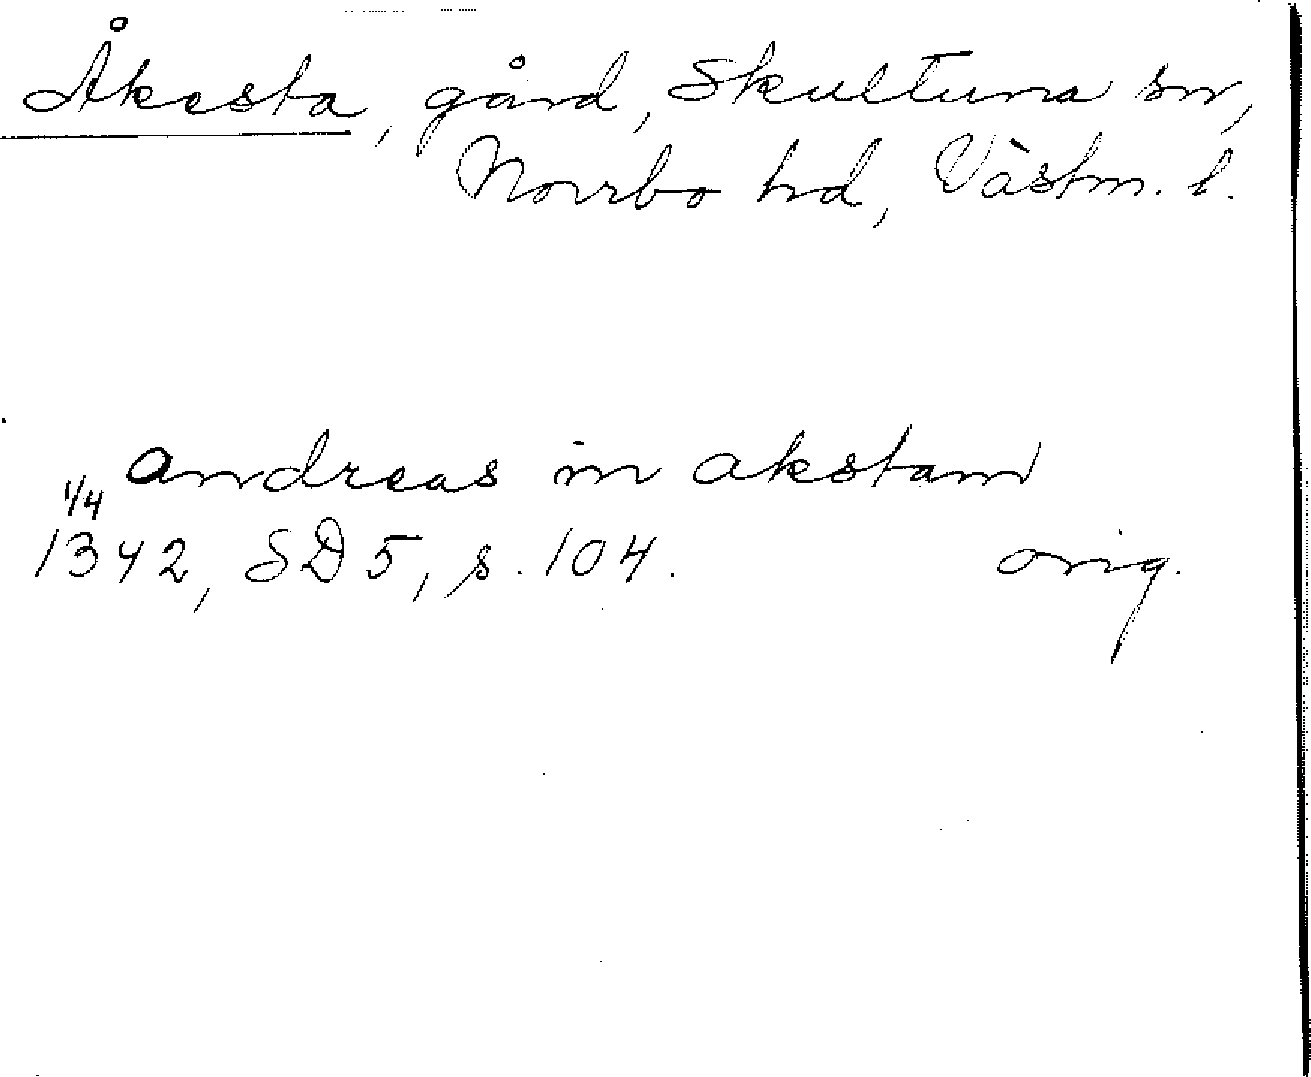 Åkesta, gård, Skultuna sn,
Norrbo hd, Västm. l.
andreas in akstam
1/4
1342, SD 5, s. 104. orig.